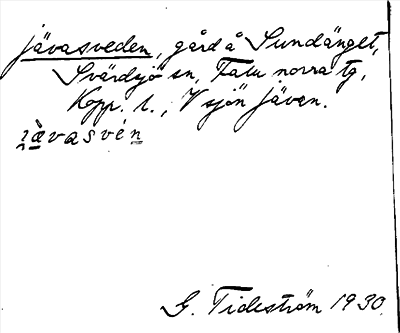 jävasveden, gård å Sundänget,
Svärdsjö sn, Falu norra tg,
Kopp. l., V sjön Jäven.
ɪ̀ävasvén
G. Tideström 1930.